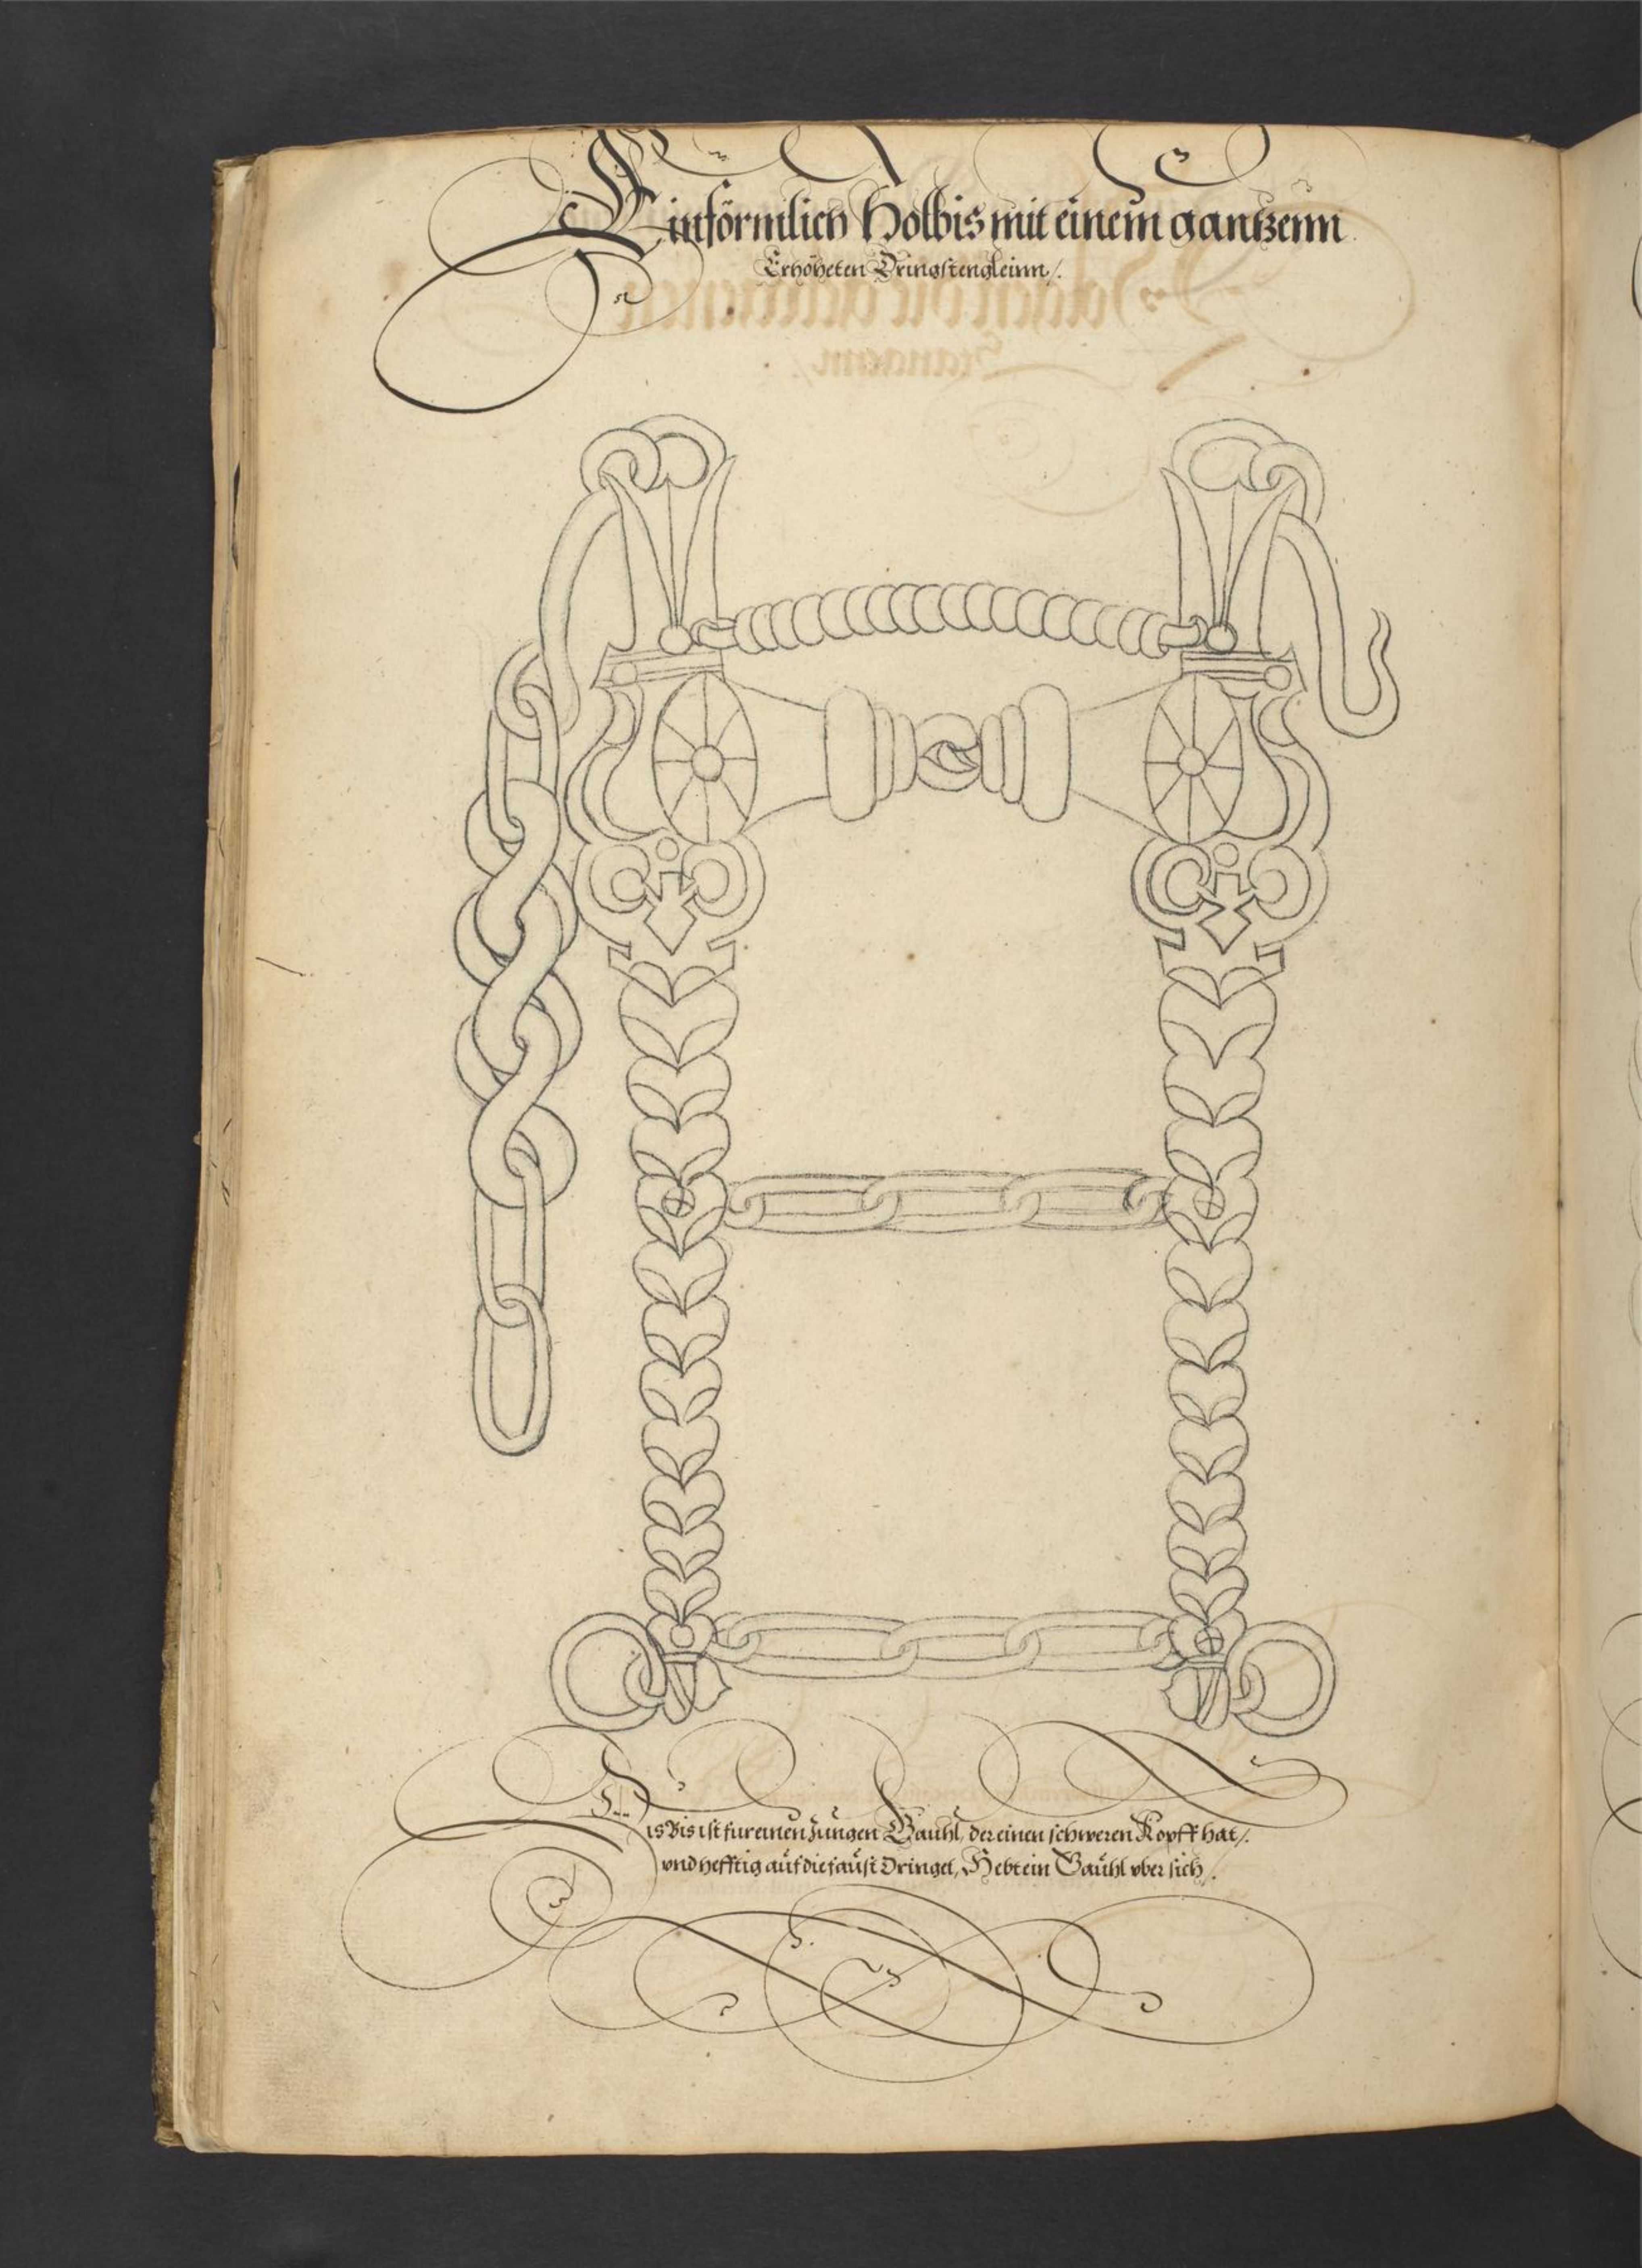 Einförmlich Holbis mit einem gantzenn
Erhöheten Dringstengleinn/.
Dis Bis ist fur einen Jungen Gauhl, der einen schweren Kopff hat/.
vnd hefftig auf die faust dringet, Hebt ein Gauhl vber sich/.